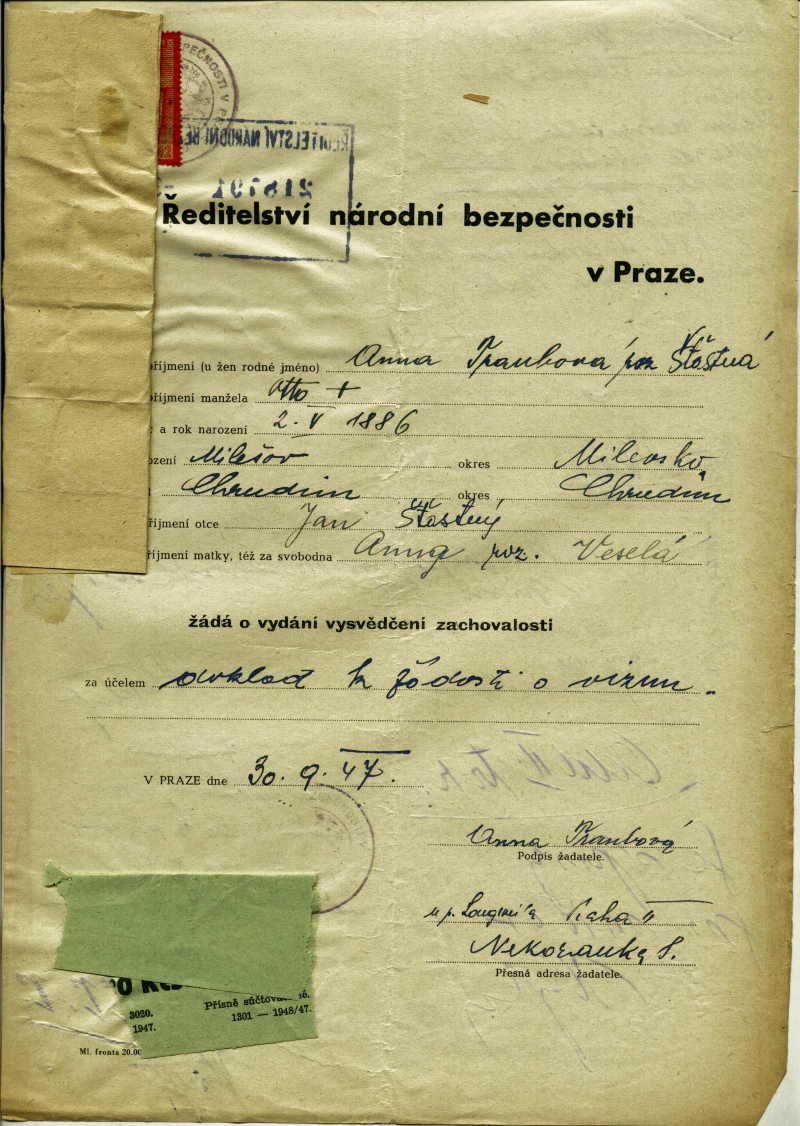 PEČNOSTI V P
ŘEDITELSTVÍ NÁRODNÍ BE
Ředitelství národní bezpečnosti
v Praze.
říjmení (u žen rodné jméno) Anna Traubová roz Šťastná
říjmení manžela Otto +
a rok narození 2. V 1886
ození Milešov okres Milevsko
Chrudim okres Chrudim
říjmení otce Jan Šťastný
říjmení matky, též za svobodna Anna roz. Veselá
žádá o vydání vysvědčení zachovalosti
za účelem doklad k žádosti o vizum
V PRAZE dne 30. 9. 47.
Anna Traubová
Podpis žadatele.
Praha II
Nekázanka 8.
Přesná adresa žadatele.
Přísně súčtova
3020.
1301 — 1948/47.
1947.
Ml. fronta 20.00